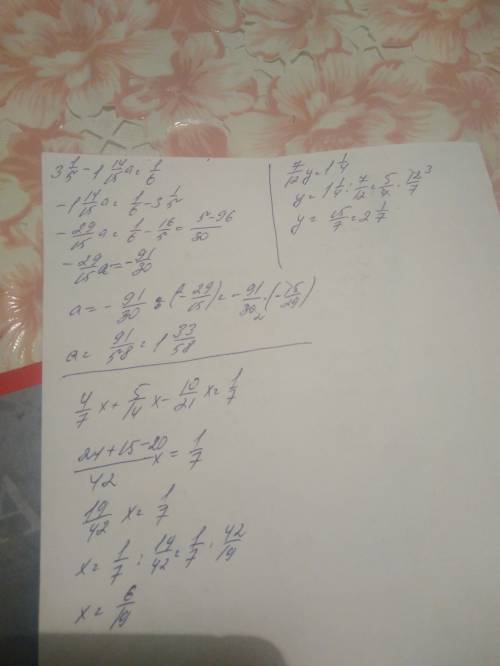 3 1/5 - 1 14/15 a = 1/6
-1 14/15 a = 1/6 - 3 1/5
-29/15 a = 1/6 - 16/5 = (5-96)/30
-29/15 a = -91/30
a = -91/30 : (-29/15) = -91/30 2 · (-15/29)
a = 91/58 = 1 33/58
7/12 y = 1 1/4
y = 1 1/4 : 7/12 = 5/4 · 12/7 3
y = 15/7 = 2 1/7
4/7 x + 5/14 x - 10/21 x = 1/7
(24+15-20)/42 x = 1/7
19/42 x = 1/7
x = 1/7 : 19/42 = 1/7 · 42/19
x = 6/19